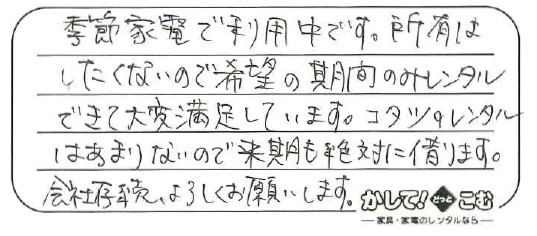 季節家電で利用中です。所有は
したくないので希望の期間のみレンタル
できて大変満足しています。コタツのレンタル
はあまりないので来期も絶対に借ります。
会社存続、よろしくお願いします。
かして!どっとこむ
家具・家電のレンタルなら